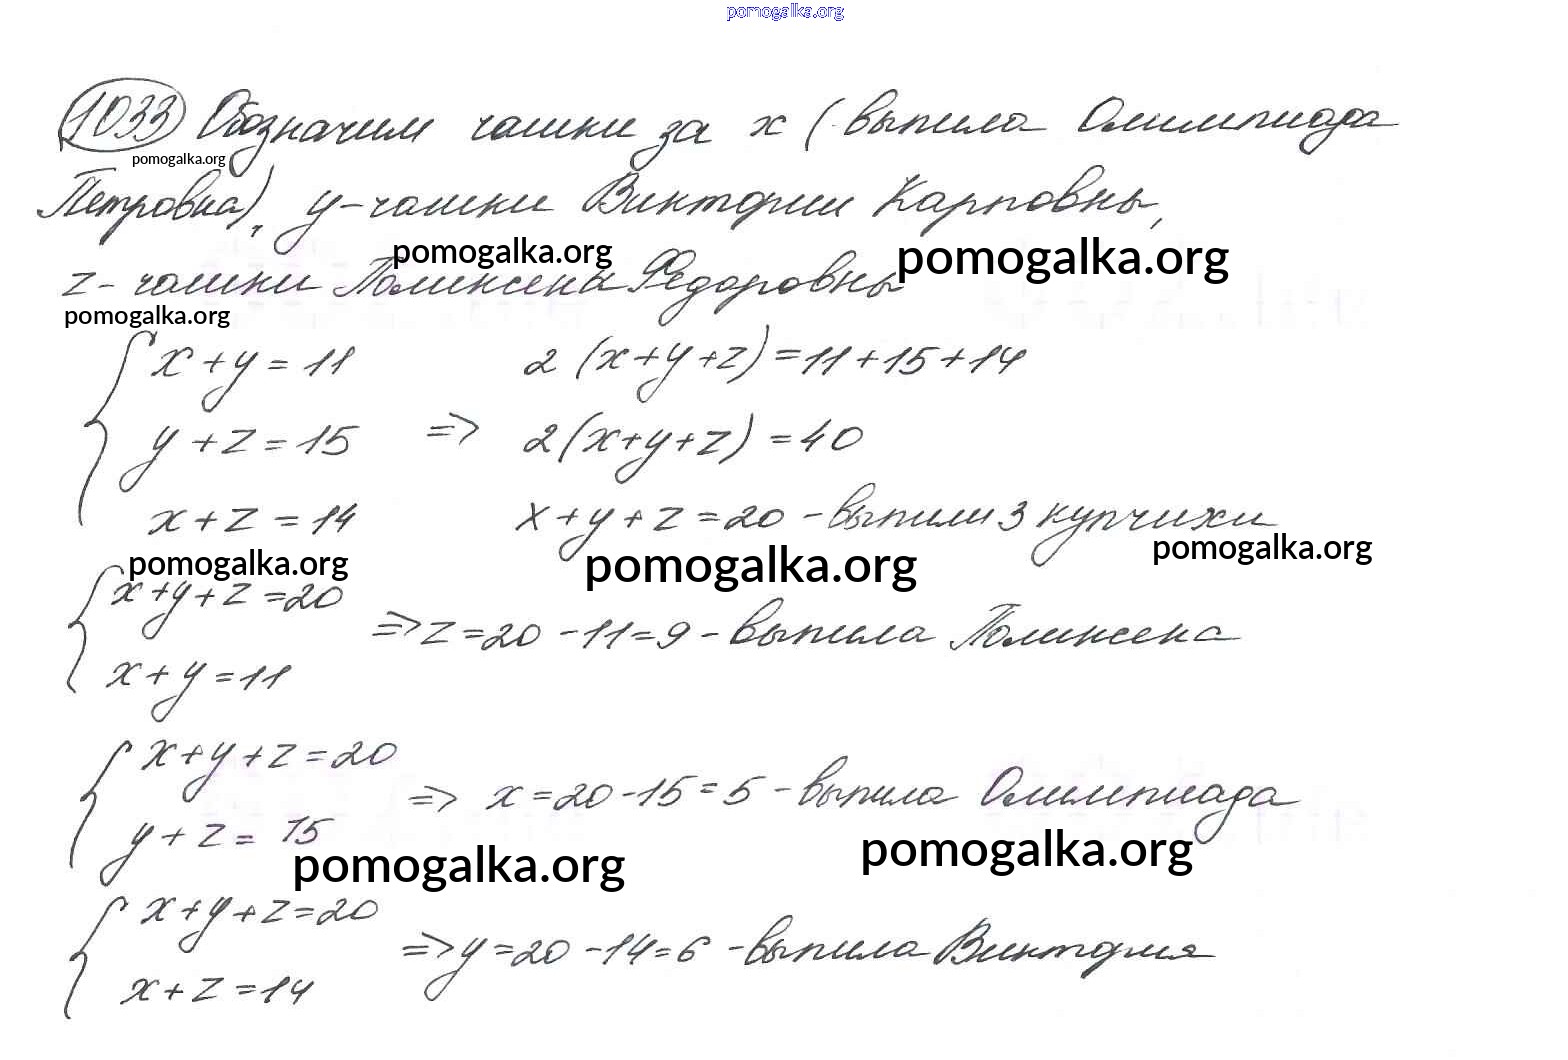 pomogalka.org
1033 Обозначим чашки за x (выпила Олимпиада
pomogalka.org
Петровна), y – чашки Виктории Карповны,
pomogalka.org pomogalka.org
z – чашки Поликсена Федоровны
pomogalka.org
x + y = 11 2 (x + y + z) = 11 + 15 + 14
y + z = 15 => 2(x+y+z) = 40
x + z = 14 x + y + z = 20 – выпили 3 купчихи
pomogalka.org pomogalka.org pomogalka.org
x + y + z = 20
=> z = 20 - 11 = 9 – выпила Поликсена
x + y = 11
x + y + z = 20
=> x = 20 - 15 = 5 – выпила Олимпиада
y + z = 15
pomogalka.org pomogalka.org
x + y + z = 20
=> y = 20 - 14 = 6 – выпила Виктория
x + z = 14